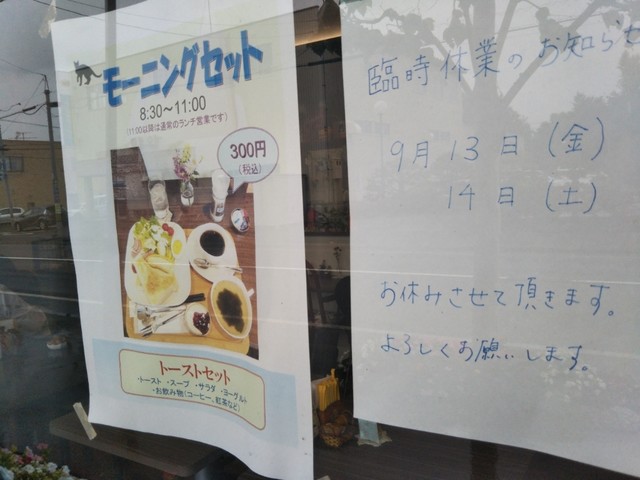 モーニングセット
8:30〜11:00
(11:00以降は通常のランチ営業です)
300円
(税込)
トーストセット
・トースト ・スープ ・サラダ ・ヨーグルト
・お飲み物(コーヒー、紅茶など)
臨時休業のお知らせ
9月13日(金)
14日(土)
お休みさせて頂きます。
よろしくお願いします。